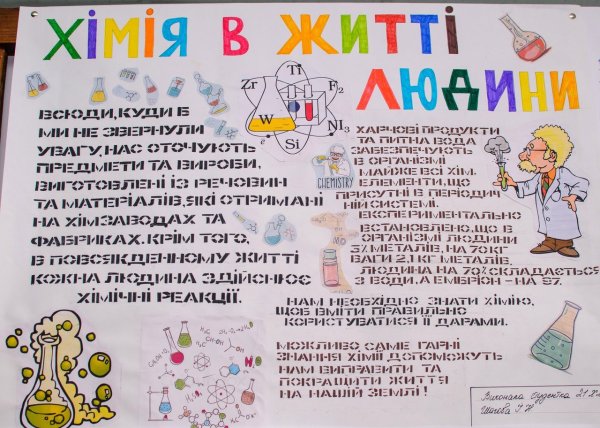 ХІМІЯ В ЖИТТІ
ЛЮДИНИ
ВСЮДИ, КУДИ Б
МИ НЕ ЗВЕРНУЛИ
УВАГУ, НАС ОТОЧУЮТЬ
ПРЕДМЕТИ ТА ВИРОБИ,
ВИГОТОВЛЕНІ ІЗ РЕЧОВИН
ТА МАТЕРІАЛІВ, ЯКІ ОТРИМАНІ
НА ХІМЗАВОДАХ ТА
ФАБРИКАХ. КРІМ ТОГО,
В ПОВСЯКДЕННОМУ ЖИТТІ
КОЖНА ЛЮДИНА ЗДІЙСНЮЄ
ХІМІЧНІ РЕАКЦІЇ.
Ti
Zr
F₂
W
NI₃
e
Si
CHEMISTRY
ХАРЧОВІ ПРОДУКТИ
ТА ПИТНА ВОДА
ЗАБЕЗПЕЧУЮТЬ
В ОРГАНІЗМІ
МАЙЖЕ ВСІ ХІМ.
ЕЛЕМЕНТИ, ЩО
ПРИСУТНІ В ПЕРІОДИЧ
НІЙ СИСТЕМІ.
ЕКСПЕРИМЕНТАЛЬНО
ВСТАНОВЛЕНО, ЩО В
ОРГАНІЗМІ ЛЮДИНИ
3% МЕТАЛІВ, НА 70 КГ
ВАГИ 2,1 КГ МЕТАЛІВ.
ЛЮДИНА НА 70% СКЛАДАЄТЬСЯ
З ВОДИ, А ЕМБРІОН - НА 97.
НАМ НЕОБХІДНО ЗНАТИ ХІМІЮ,
ЩОБ ВМІТИ ПРАВИЛЬНО
КОРИСТУВАТИСЯ ЇЇ ДАРАМИ.
МОЖЛИВО, САМЕ ГАРНІ
ЗНАННЯ ХІМІЇ ДОПОМОЖУТЬ
НАМ ВИПРАВИТИ ТА
ПОКРАЩИТИ ЖИТТЯ
НА НАШІЙ ЗЕМЛІ!
Виконала студентка